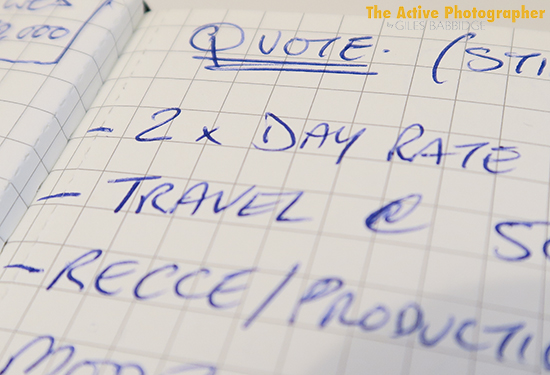 The Active Photographer
BY GILES BABBIDGE
QUOTE. (STI
- 2 x DAY RATE
- TRAVEL @ 
- RECCE/PRODUCTI